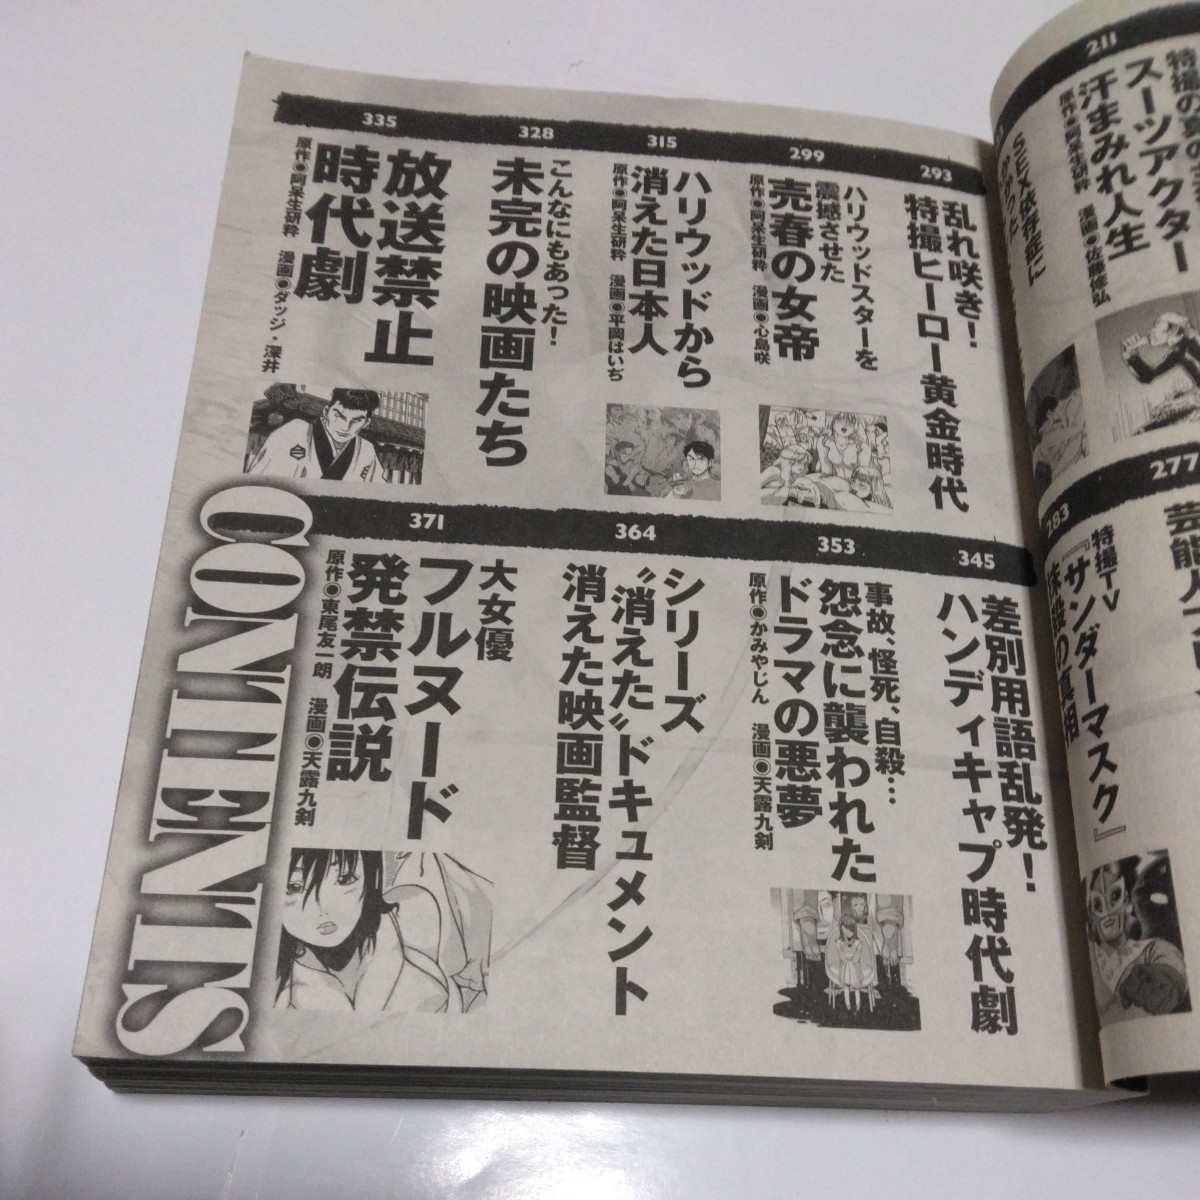 211
スーツアクター
汗まみれ人生
SEX依存症に
277
283
特撮TV
『サンダーマスク』
293
乱れ咲き！
特撮ヒーロー黄金時代
299
ハリウッドスターを
震撼させた
売春の女帝
原作●阿呆生研粋 漫画●心島咲
315
ハリウッドから
消えた日本人
原作●阿呆生研粋 漫画●平岡はいぢ
328
こんなにもあった！
未完の映画たち
335
放送禁止
時代劇
原作●阿呆生研粋 漫画●ダッジ・深井
345
差別用語乱発！
ハンディキャプ時代劇
353
事故、怪死、自殺…
怨念に襲われた
ドラマの悪夢
原作●かみやじん 漫画●天露九剣
364
シリーズ
〝消えた〟ドキュメント
消えた映画監督
371
大女優
フルヌード
発禁伝説
原作●東尾友一朗 漫画●天露九剣
CONTENTS